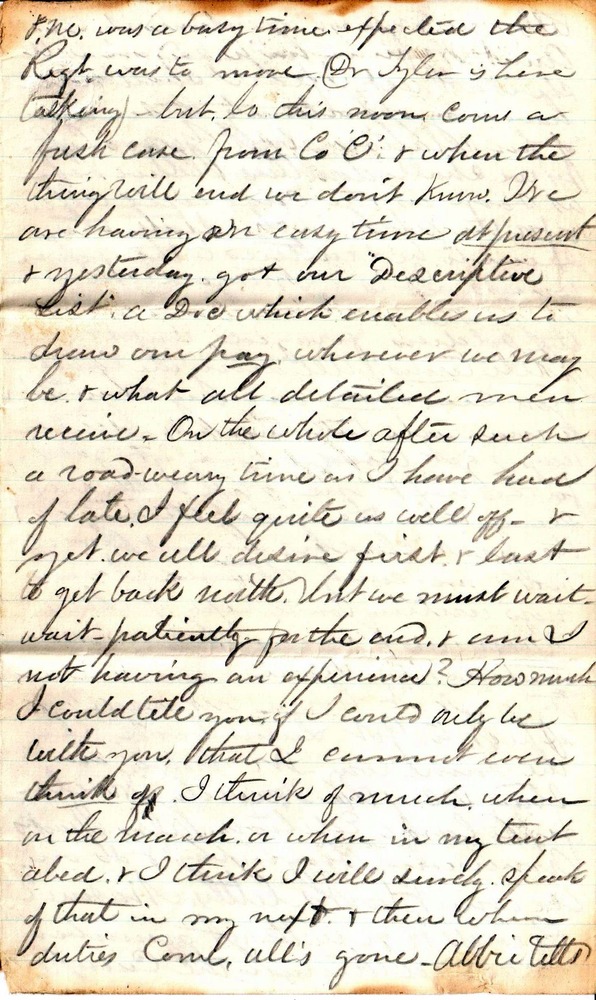 & me. was a busy time. expected the
Regt. was to move. (Dr Tyler is here
talking) - but, lo this noon, come a
fresh case. from Co 'C'. & when the
thing will end we don't know. We
are having an easy time at present
& yesterday. got our "Descriptive
List". a Doc which enables us to
draw our pay, wherever we may
be. & what all detailed men
receive - On the whole after such
a road-weary time as I have had
of late, I feel quite as well off - &
yet. we all desire first. & last
to get back north. but we must wait -
wait - patiently for the end. & am I
not having an experience? How much
I could tell you, if I could only be
with you. that I cannot even
think of. I think of much, when
on the march. or when in my tent
abed. & I think I will surely. speak
of that in my next. & then when
duties come, all's gone - Abbie tells